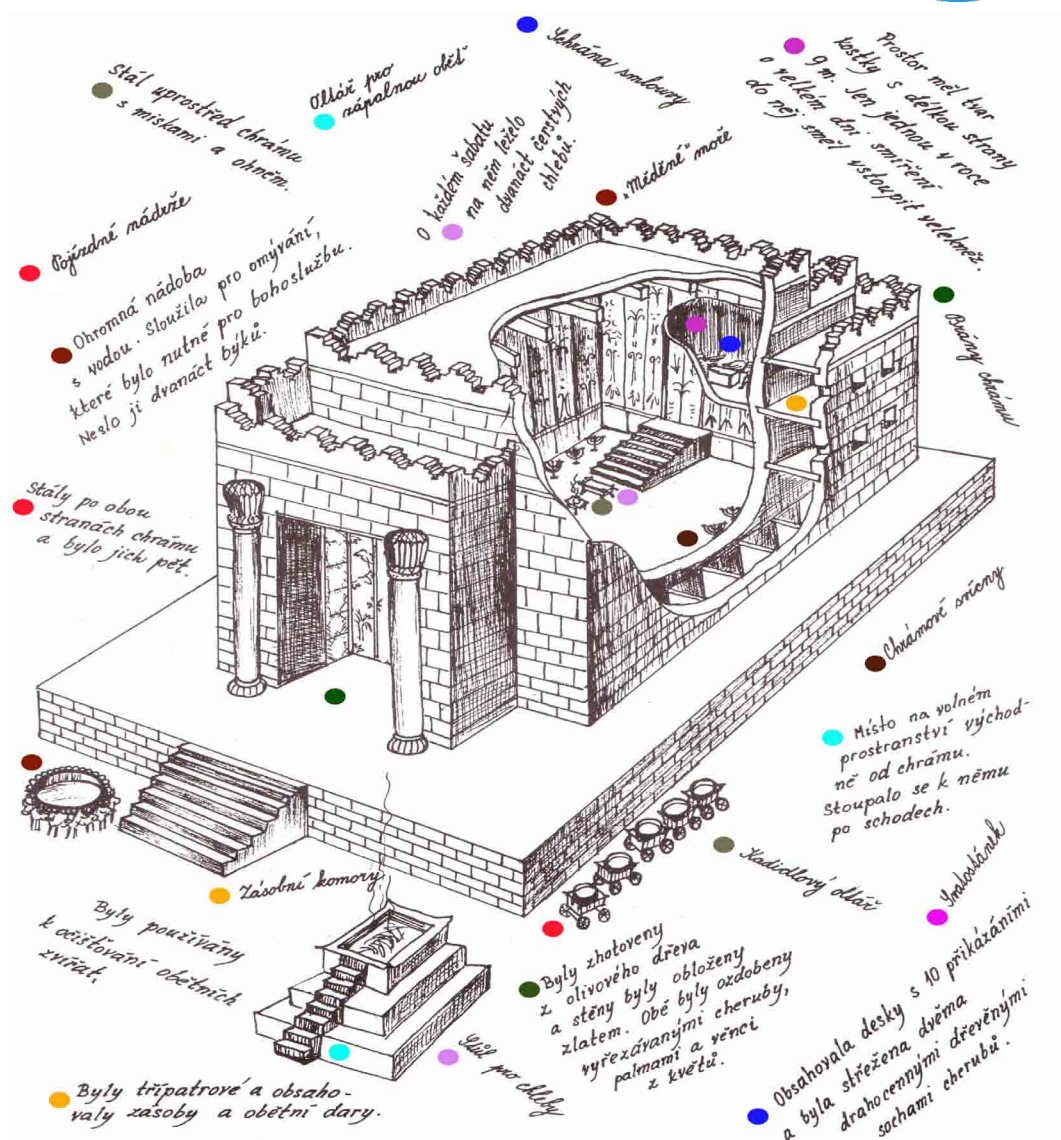 Stál uprostřed chrámu
s miskami a ohněm.
Oltář pro
zápalnou oběť
Schrána smlouvy
Prostor měl tvar
kostky s délkou strany
9 m. Jen jednou v roce
o velkém dni smíření
do něj směl vstoupit velekněz.
O každém šabatu
na něm leželo
dvanáct čerstvých
chlebů.
„Měděné" moře
Pojízdné nádrže
Ohromná nádoba
s vodou. Sloužila pro omývání,
které bylo nutné pro bohoslužbu.
Neslo ji dvanáct býků.
Brány chrámu
Stály po obou
stranách chrámu
a bylo jich pět.
Chrámové svícny
Místo na volném
prostranství východ-
ně od chrámu.
Stoupalo se k němu
po schodech.
Kadidlový oltář
Svatostánek
Zásobní komory
Byly používány
k očišťování obětních
zvířat.
Byly zhotoveny
z olivového dřeva
a stěny byly obloženy
zlatem. Obě byly ozdobeny
vyřezávanými cheruby,
palmami a věnci
z květů.
Stůl pro chleby
Byly třípatrové a obsaho-
valy zásoby a obětní dary.
Obsahovala desky s 10 přikázáními
a byla střežena dvěma
drahocennými dřevěnými
sochami cherubů.